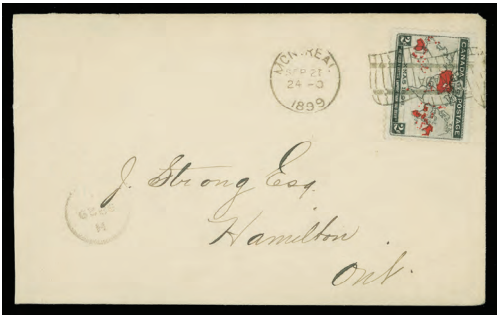 MONTREAL
SEP 21
24-0
1899
CANADA POSTAGE
XMAS
2¢
2¢
J. Strong Esq.
Hamilton
Ont.